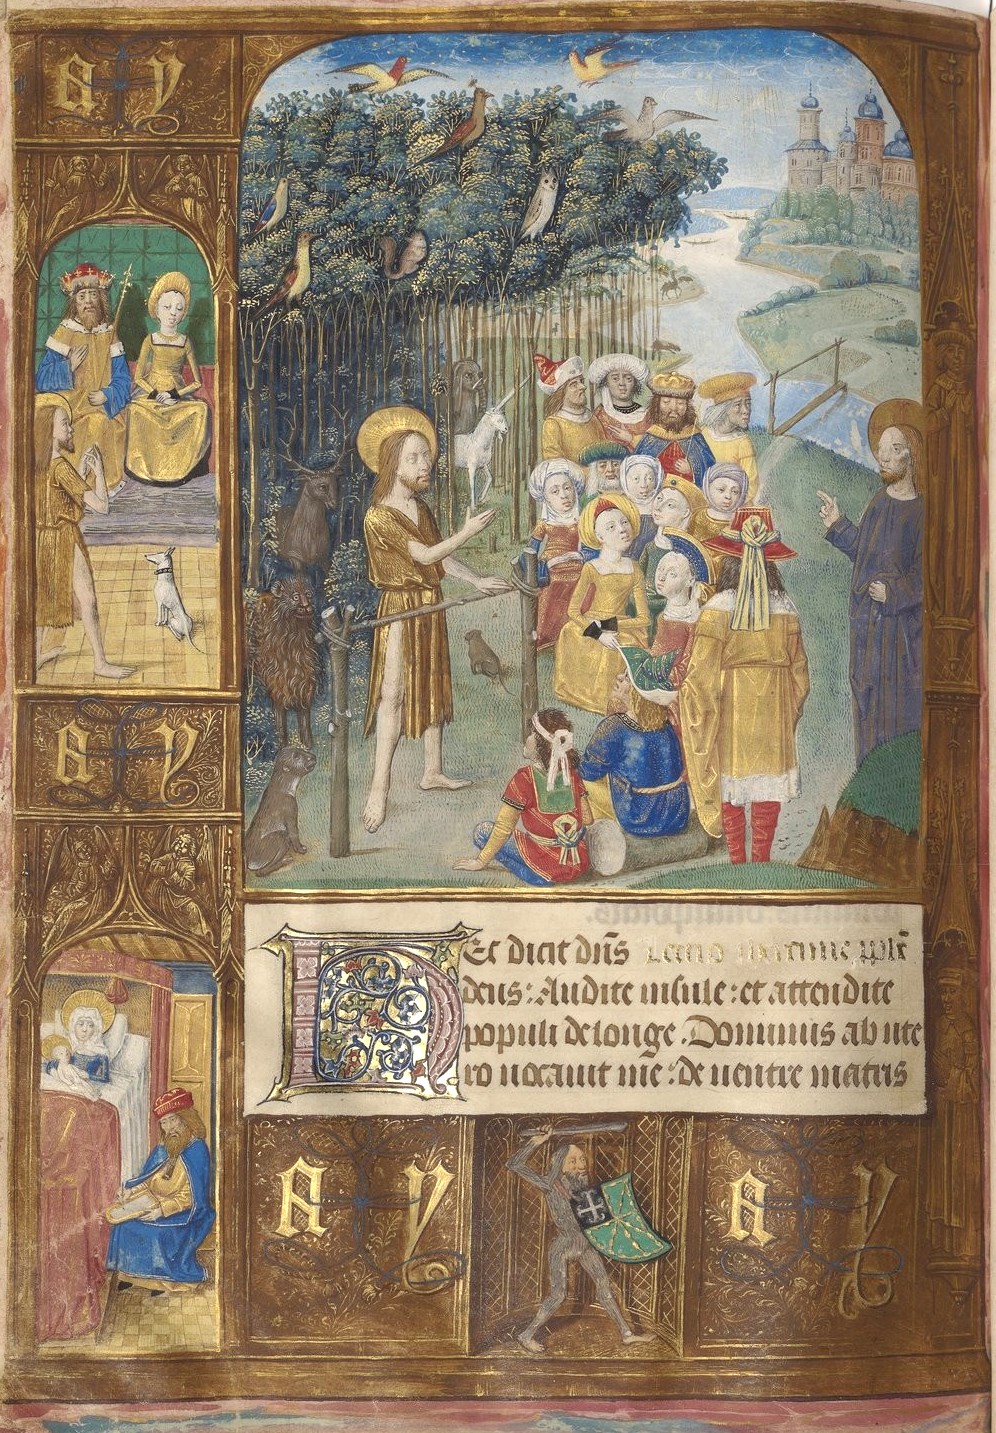 A Y
A Y
Et dicit dn̄s
deus: Audite insule: et attendite
populi de longe. Dominus ab ute
ro uocauit me: de uentre matris
A Y
A Y